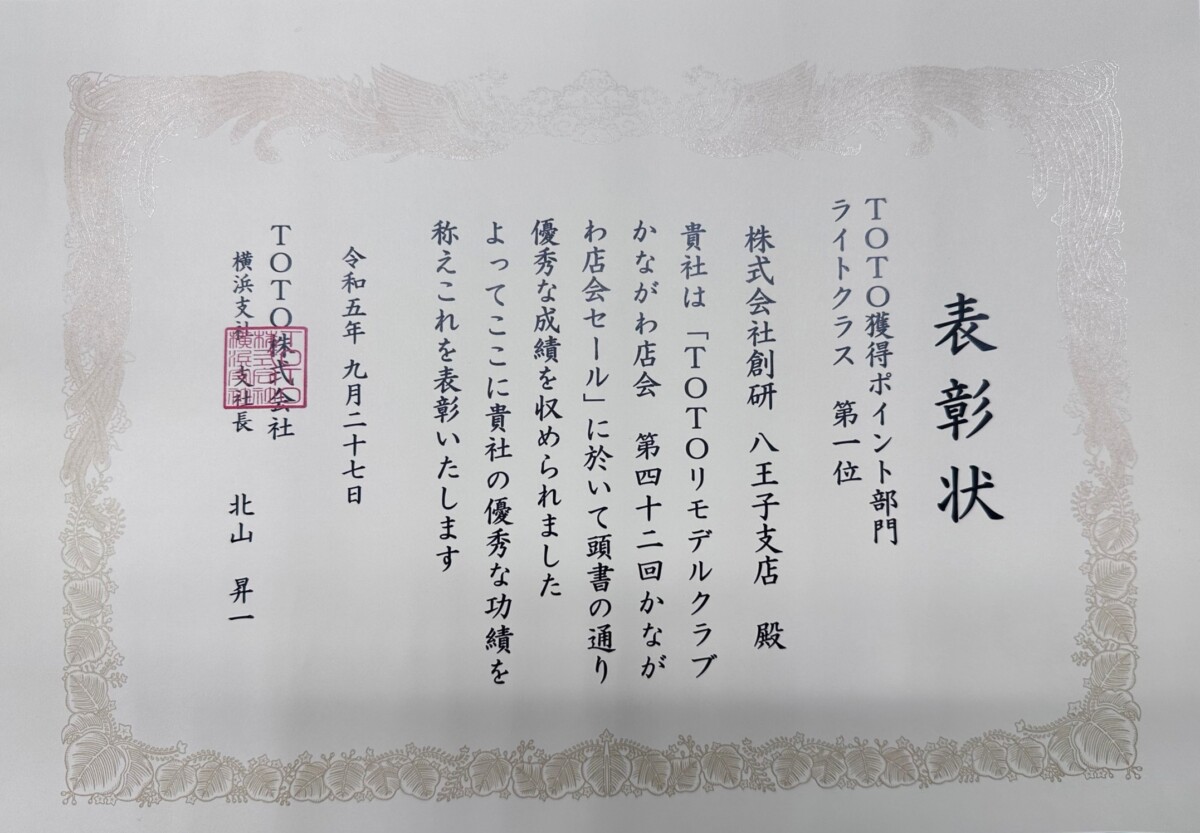 表彰状
TOTO獲得ポイント部門
ライトクラス 第一位
株式会社創研 八王子支店 殿
貴社は「TOTOリモデルクラブ
かながわ店会 第四十二回かなが
わ店会セール」に於いて頭書の通り
優秀な成績を収められました
よってここに貴社の優秀な功績を
称えこれを表彰いたします
令和五年 九月二十七日
TOTO株式会社
横浜支社 支社長 北山 昇一